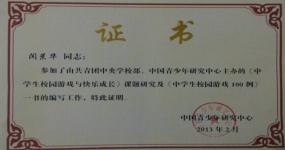 证 书
闵景华 同志：
参加了由共青团中央学校部、中国青少年研究中心主办的《中
学生校园游戏与快乐成长》课题研究及《中学生校园游戏100例》
一书的编写工作，特此证明。
中国青少年研究中心
2013年2月